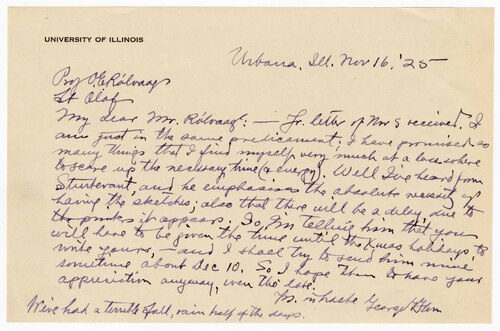 UNIVERSITY OF ILLINOIS
Urbana, Ill. Nov 16, '25
Prof O.E. Rölvaag
St Olaf
My dear Mr. Rölvaag: — Yr. letter of Nov 9 received. I
am just in the same predicament; I have promised so
many things that I find myself very much at a loss where
to scare up the necessary time (& energy). Well I've heard from
Sturtevant, and he emphasizes the absolute necessity of
having the sketches; also that there will be a delay, due to
the printers it appears. So, I'm telling him that you
will have to be given the time until the Xmas holidays, to
write yours, — and I shall try to send him mine
sometime about Dec 10. So I hope then to have your
appreciation anyway, even the late.
Yrs. in haste George
We've had a terrible fall, rain half of the days.